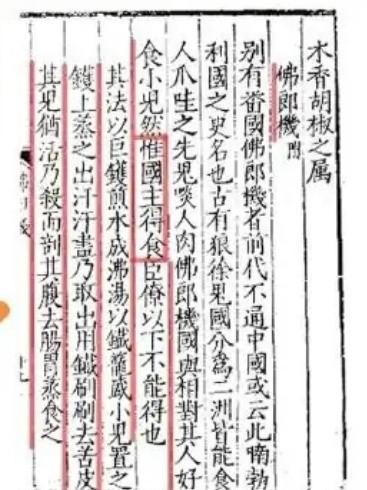 木香胡椒之属
佛郎機
別有番國佛郎機者前代不通中國或云此喃勃
利國之史名也古有狼徐鬼國分為二洲皆能食
人爪哇之先鬼啖人肉佛郎機國與相對其人好
食小兒然惟國主得食臣僚以下不能得也
其法以巨鑊煎水成沸湯以鐵籠盛小兒置之
鑊上蒸之出汗汗盡乃取出用鐵刷刷去苦皮
其兒猶活乃殺而剖其腹去腸胃蒸食之